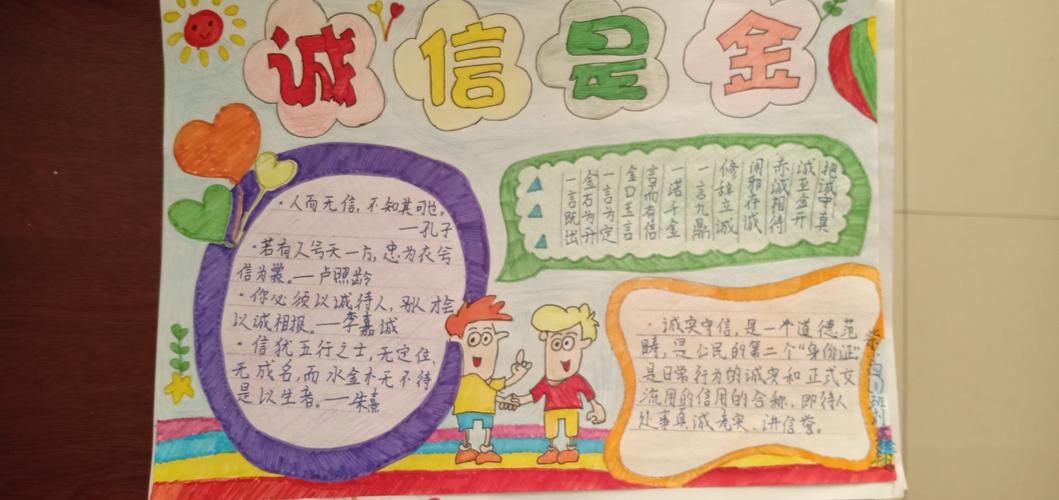 诚信是金
·人而无信,不知其可也。
—孔子
·若有人兮天一方,忠为衣兮
信为裳。—卢照龄
·你必须以诚待人,别人才会
以诚相报。—李嘉诚
·信犹五行之士,无定位,
无成名,而水金木无不待
是以生者。—朱熹
抱诚守真
诚至金开
赤诚相待
闲邪存诚
修辞立诚
一言九鼎
一诺千金
言而有信
金口玉言
一言为定
金石为开
一言既出
·诚实守信,是一个道德范
畴,是公民的第二个“身份证”
是日常行为的诚实和正式交
流用的信用的合称。即待人
处事真诚老实、讲信誉。